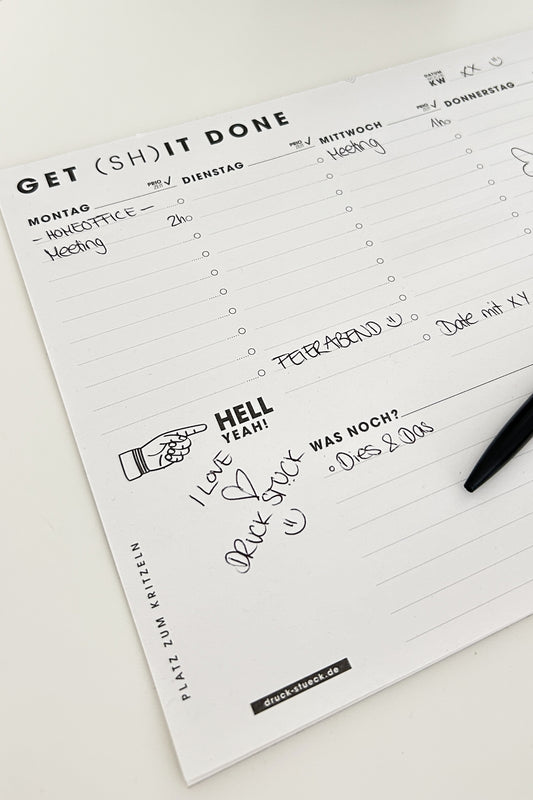 GET (SH)IT DONE
DATUM
KW XX
MONTAG PRIO ZEIT ✓
DIENSTAG PRIO ZEIT ✓
MITTWOCH PRIO ZEIT ✓
DONNERSTAG
- HOMEOFFICE -
Meeting 2h
Meeting 1h
FEIERABEND
Date mit XY
HELL
YEAH!
I LOVE
DRUCK STÜCK
WAS NOCH?
Dies & Das
PLATZ ZUM KRITZELN
druck-stueck.de